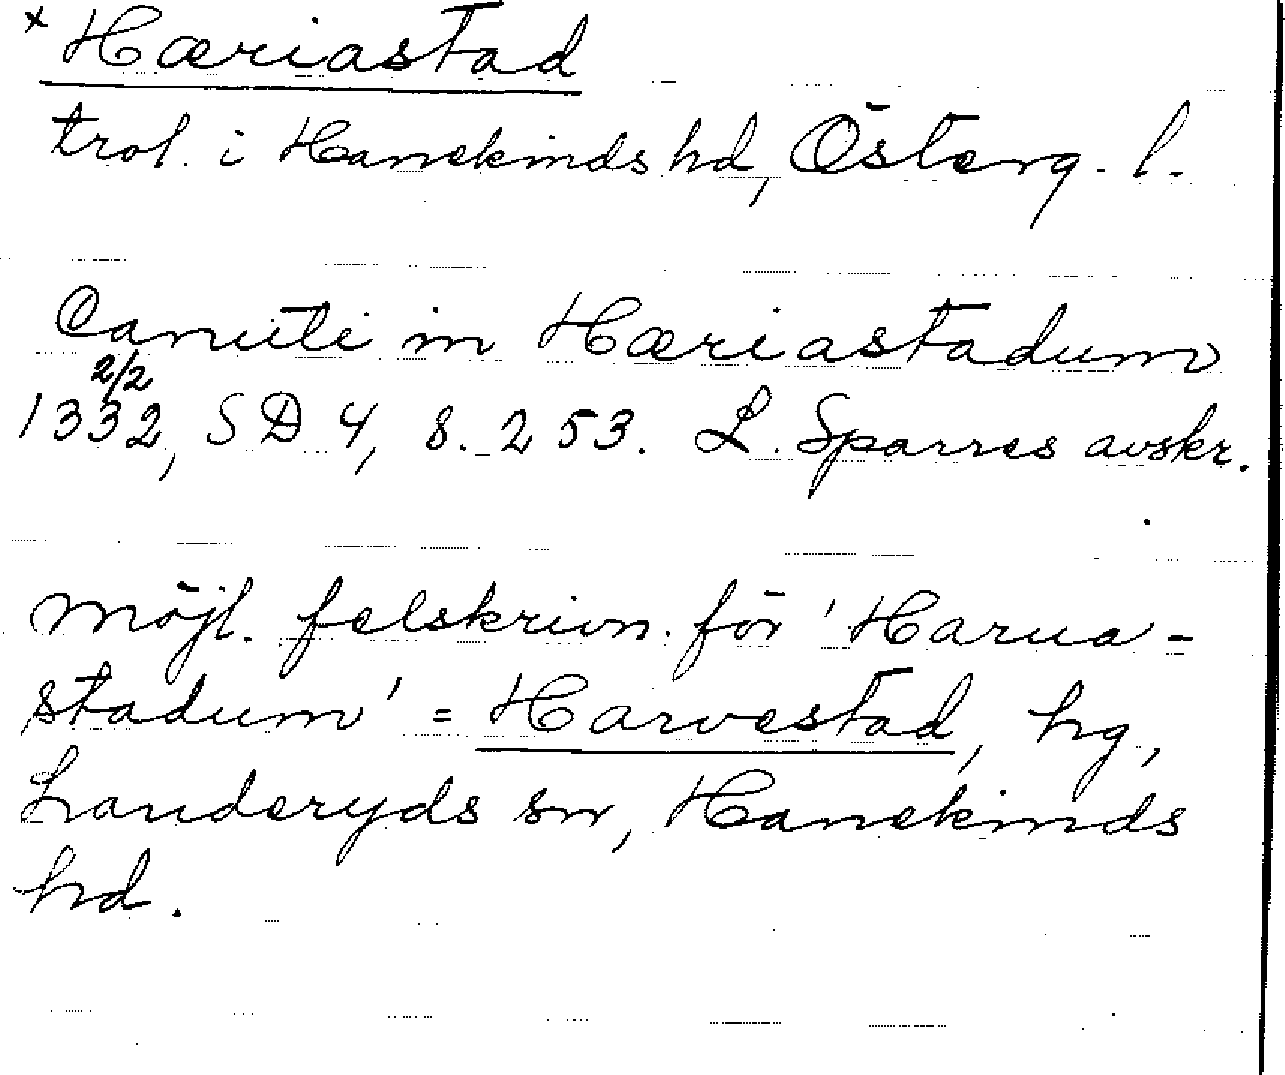 x Hæriastad
trol. i Hanekinds hd, Österg. l.
Canuti in Hæriastadum
1332 2/2, SD 4, s. 253. L. Sparres avskr.
möjl. felskrivn. för 'Harua-
stadum' = Harvestad, hg,
Landeryds sn, Hanekinds
hd.